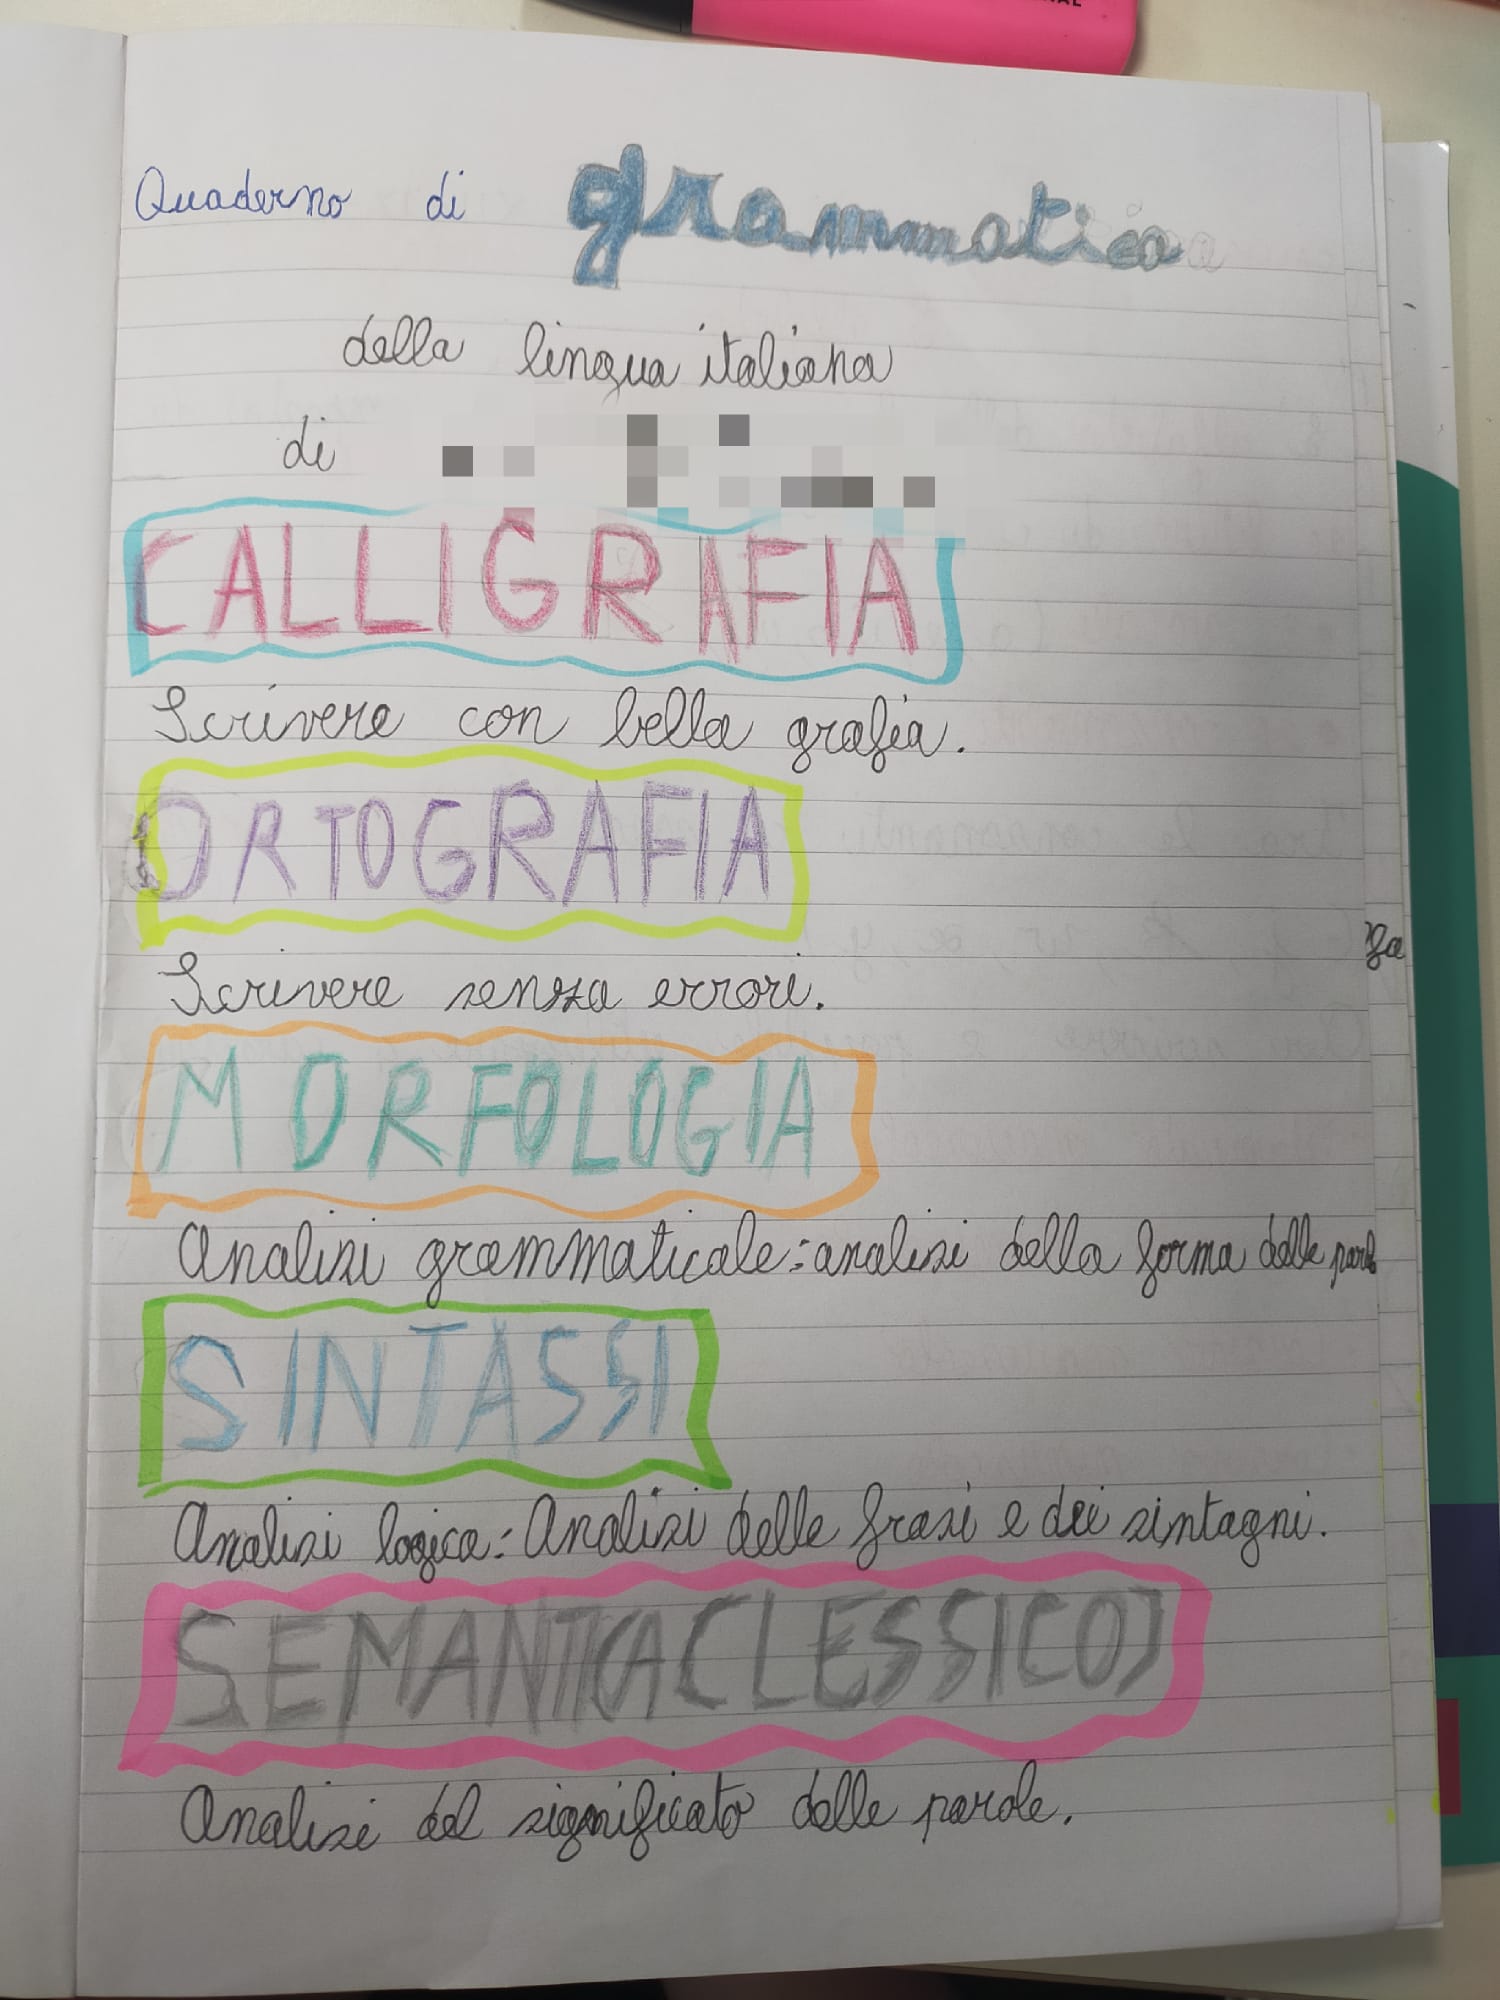 Quaderno di grammatica
della lingua italiana
di
CALLIGRAFIA
Scrivere con bella grafia.
ORTOGRAFIA
Scrivere senza errori.
MORFOLOGIA
Analisi grammaticale: analisi della forma delle parole
SINTASSI
Analisi logica: Analisi delle frasi e dei sintagni.
SEMANTICA (LESSICO)
Analisi del significato delle parole.